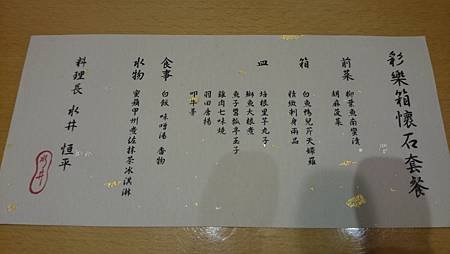 彩樂箱懷石套餐
前菜
柳葉魚南蠻漬
胡麻菠菜
箱
白魚鴨兒芹天婦羅
精緻刺身兩品
皿
培根里芋丸子
鰤魚大根煮
魚子醬熱亭玉子
雞肉七味燒
羽田唐揚
叩牛蒡
食事
白飯 味噌湯 香物
水物
蜜蘋甲州煮佐抹茶冰淇淋
料理長 水井 恒平